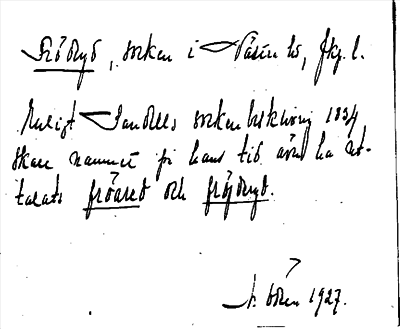 Fröryd, socken i Västra hd, Jkg. l.
Enligt Sandells sockenbeskrivning 1834
skall namnet på hans tid även ha ut-
talats fröared och fröjdryd.
1927.